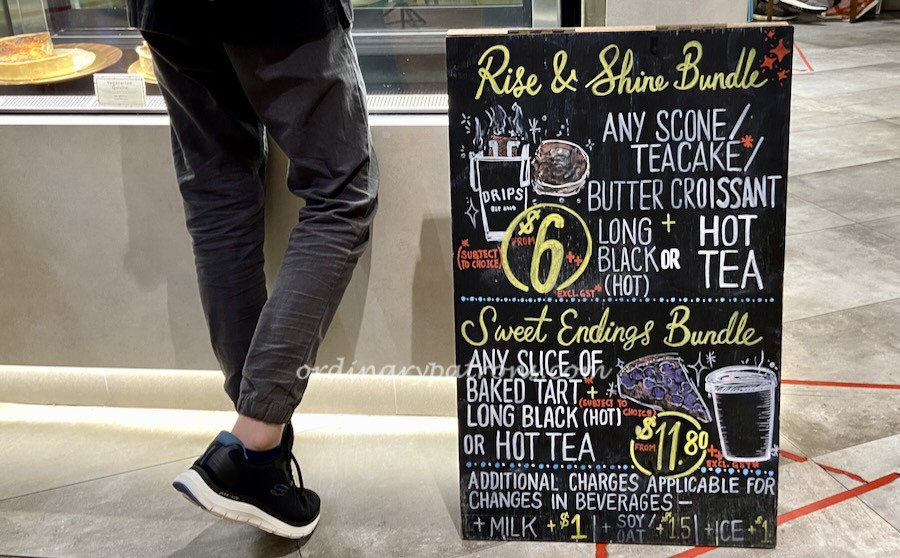 Rise & Shine Bundle
ANY SCONE/
TEACAKE*/
BUTTER CROISSANT
DRIPS
EST 2010
*(SUBJECT
TO CHOICE)
FROM $6++
EXCL. GST*
LONG + HOT
BLACK OR TEA
(HOT)
Sweet Endings Bundle
ANY SLICE OF
BAKED TART* +
(SUBJECT TO
CHOICE)
LONG BLACK (HOT)
OR HOT TEA
FROM $11.80++
EXCL. GST*
ADDITIONAL CHARGES APPLICABLE FOR
CHANGES IN BEVERAGES –
+ MILK +$1 | + SOY/OAT +$1.5 | + ICE +$1
ordinarypatrons.com